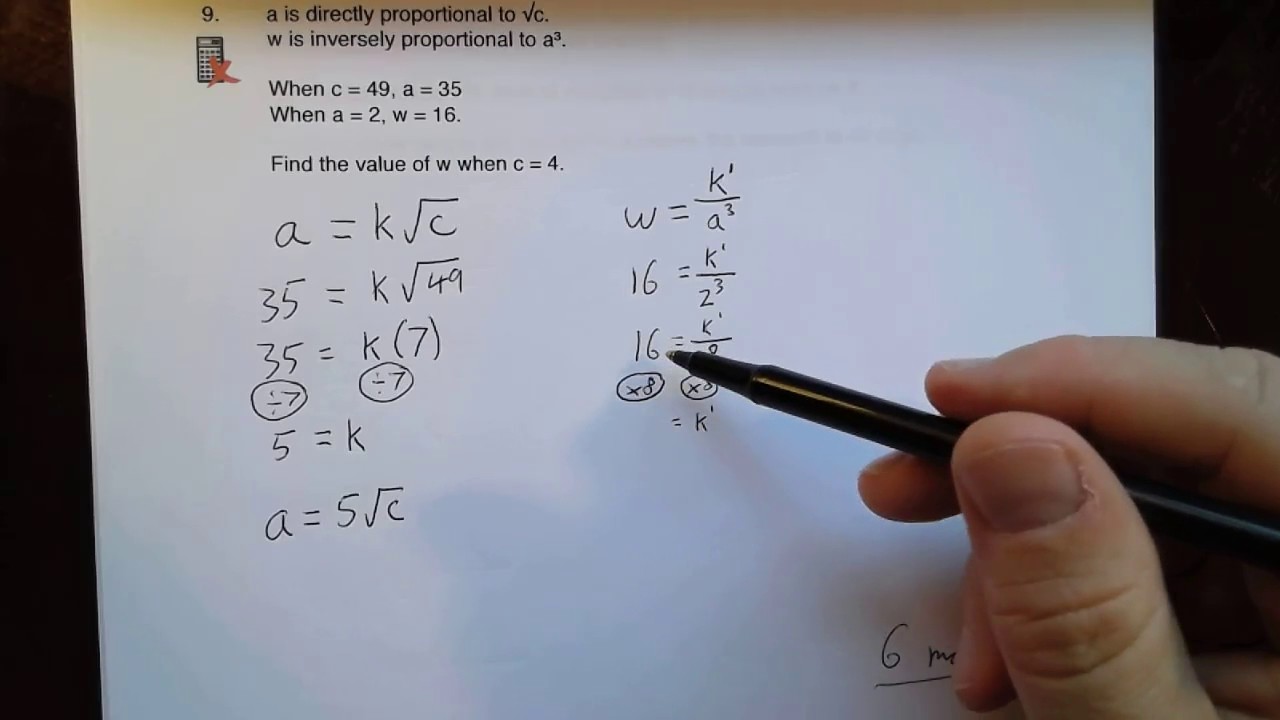 9. a is directly proportional to √c.
w is inversely proportional to a³.
When c = 49, a = 35
When a = 2, w = 16.
Find the value of w when c = 4.
a = k√c
35 = k√49
35 = k(7)
÷7 ÷7
5 = k
a = 5√c
w = k'/a³
16 = k'/2³
16 = k'/8
×8 ×8
= k'
6